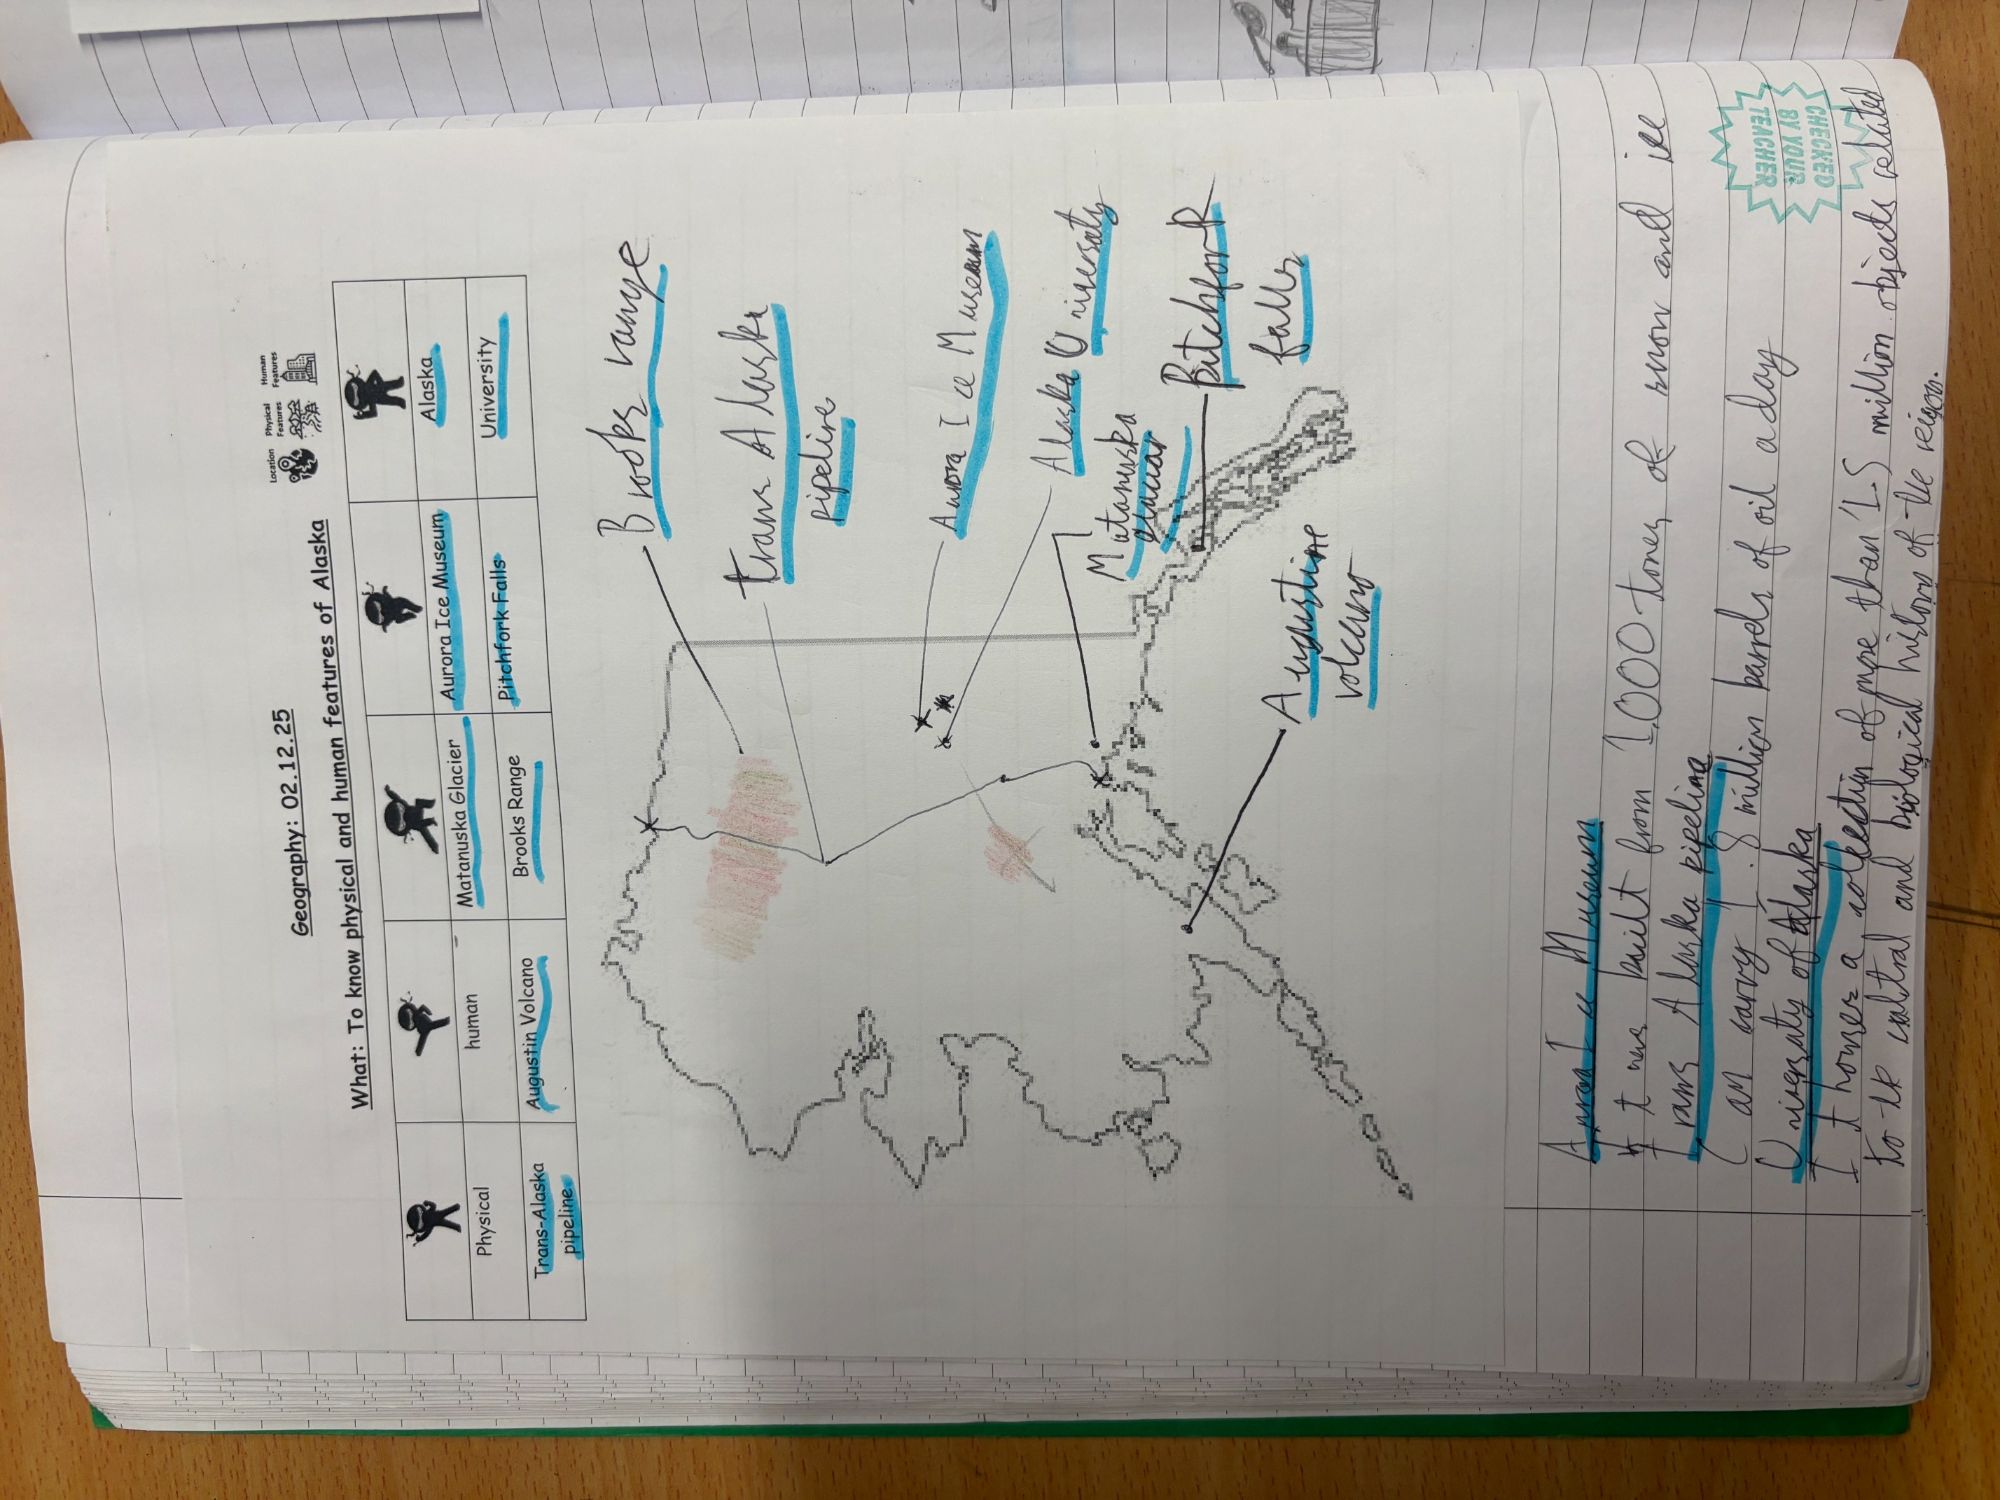 Geography: 02.12.25
What: To know physical and human features of Alaska
Location
Physical Features
Human Features
Physical
human
Matanuska Glacier
Aurora Ice Museum
Alaska
Trans-Alaska pipeline
Augustin Volcano
Brooks Range
Pitchfork Falls
University
Brooks range
trans Alaska
pipeline
Aurora Ice Museum
Alaska Universaty
Matanuska
glaciar
Pitchfork
falls
Augustine
volcano
It was built from 1,000 tones of snow and ice
Trans Alaska pipeline
Can carry 1.8 million barrels of oil a day
Universaty of Alaska
It houses a collection of more than 1.5 million objects related
to the cultral and biological history of the reigon.
CHECKED
BY YOUR
TEACHER